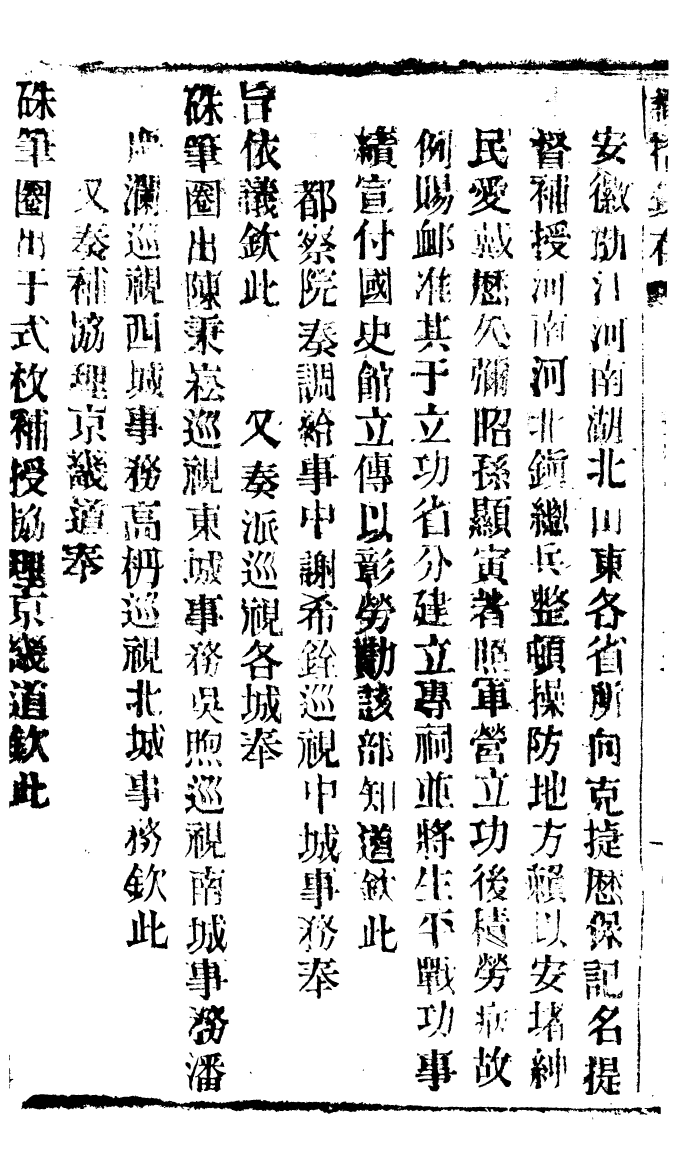 安徽浙江河南湖北山東各省所向克捷歷保記名提
督補授河南河北鎮總兵整頓操防地方賴以安堵紳
民愛戴歷久彌昭孫顯寅著照軍營立功後積勞病故
例賜卹准其于立功省分建立專祠並將生平戰功事
績宣付國史館立傳以彰勞勩該部知道欽此
都察院奏調給事中謝希銓巡視中城事務奉
旨依議欽此 又奏派巡視各城奉
硃筆圈出陳秉崧巡視東城事務吳煦巡視南城事務潘
瀾巡視西城事務高枬巡視北城事務欽此
又奏補協理京畿道奉
硃筆圈出于式枚補授協理京畿道欽此